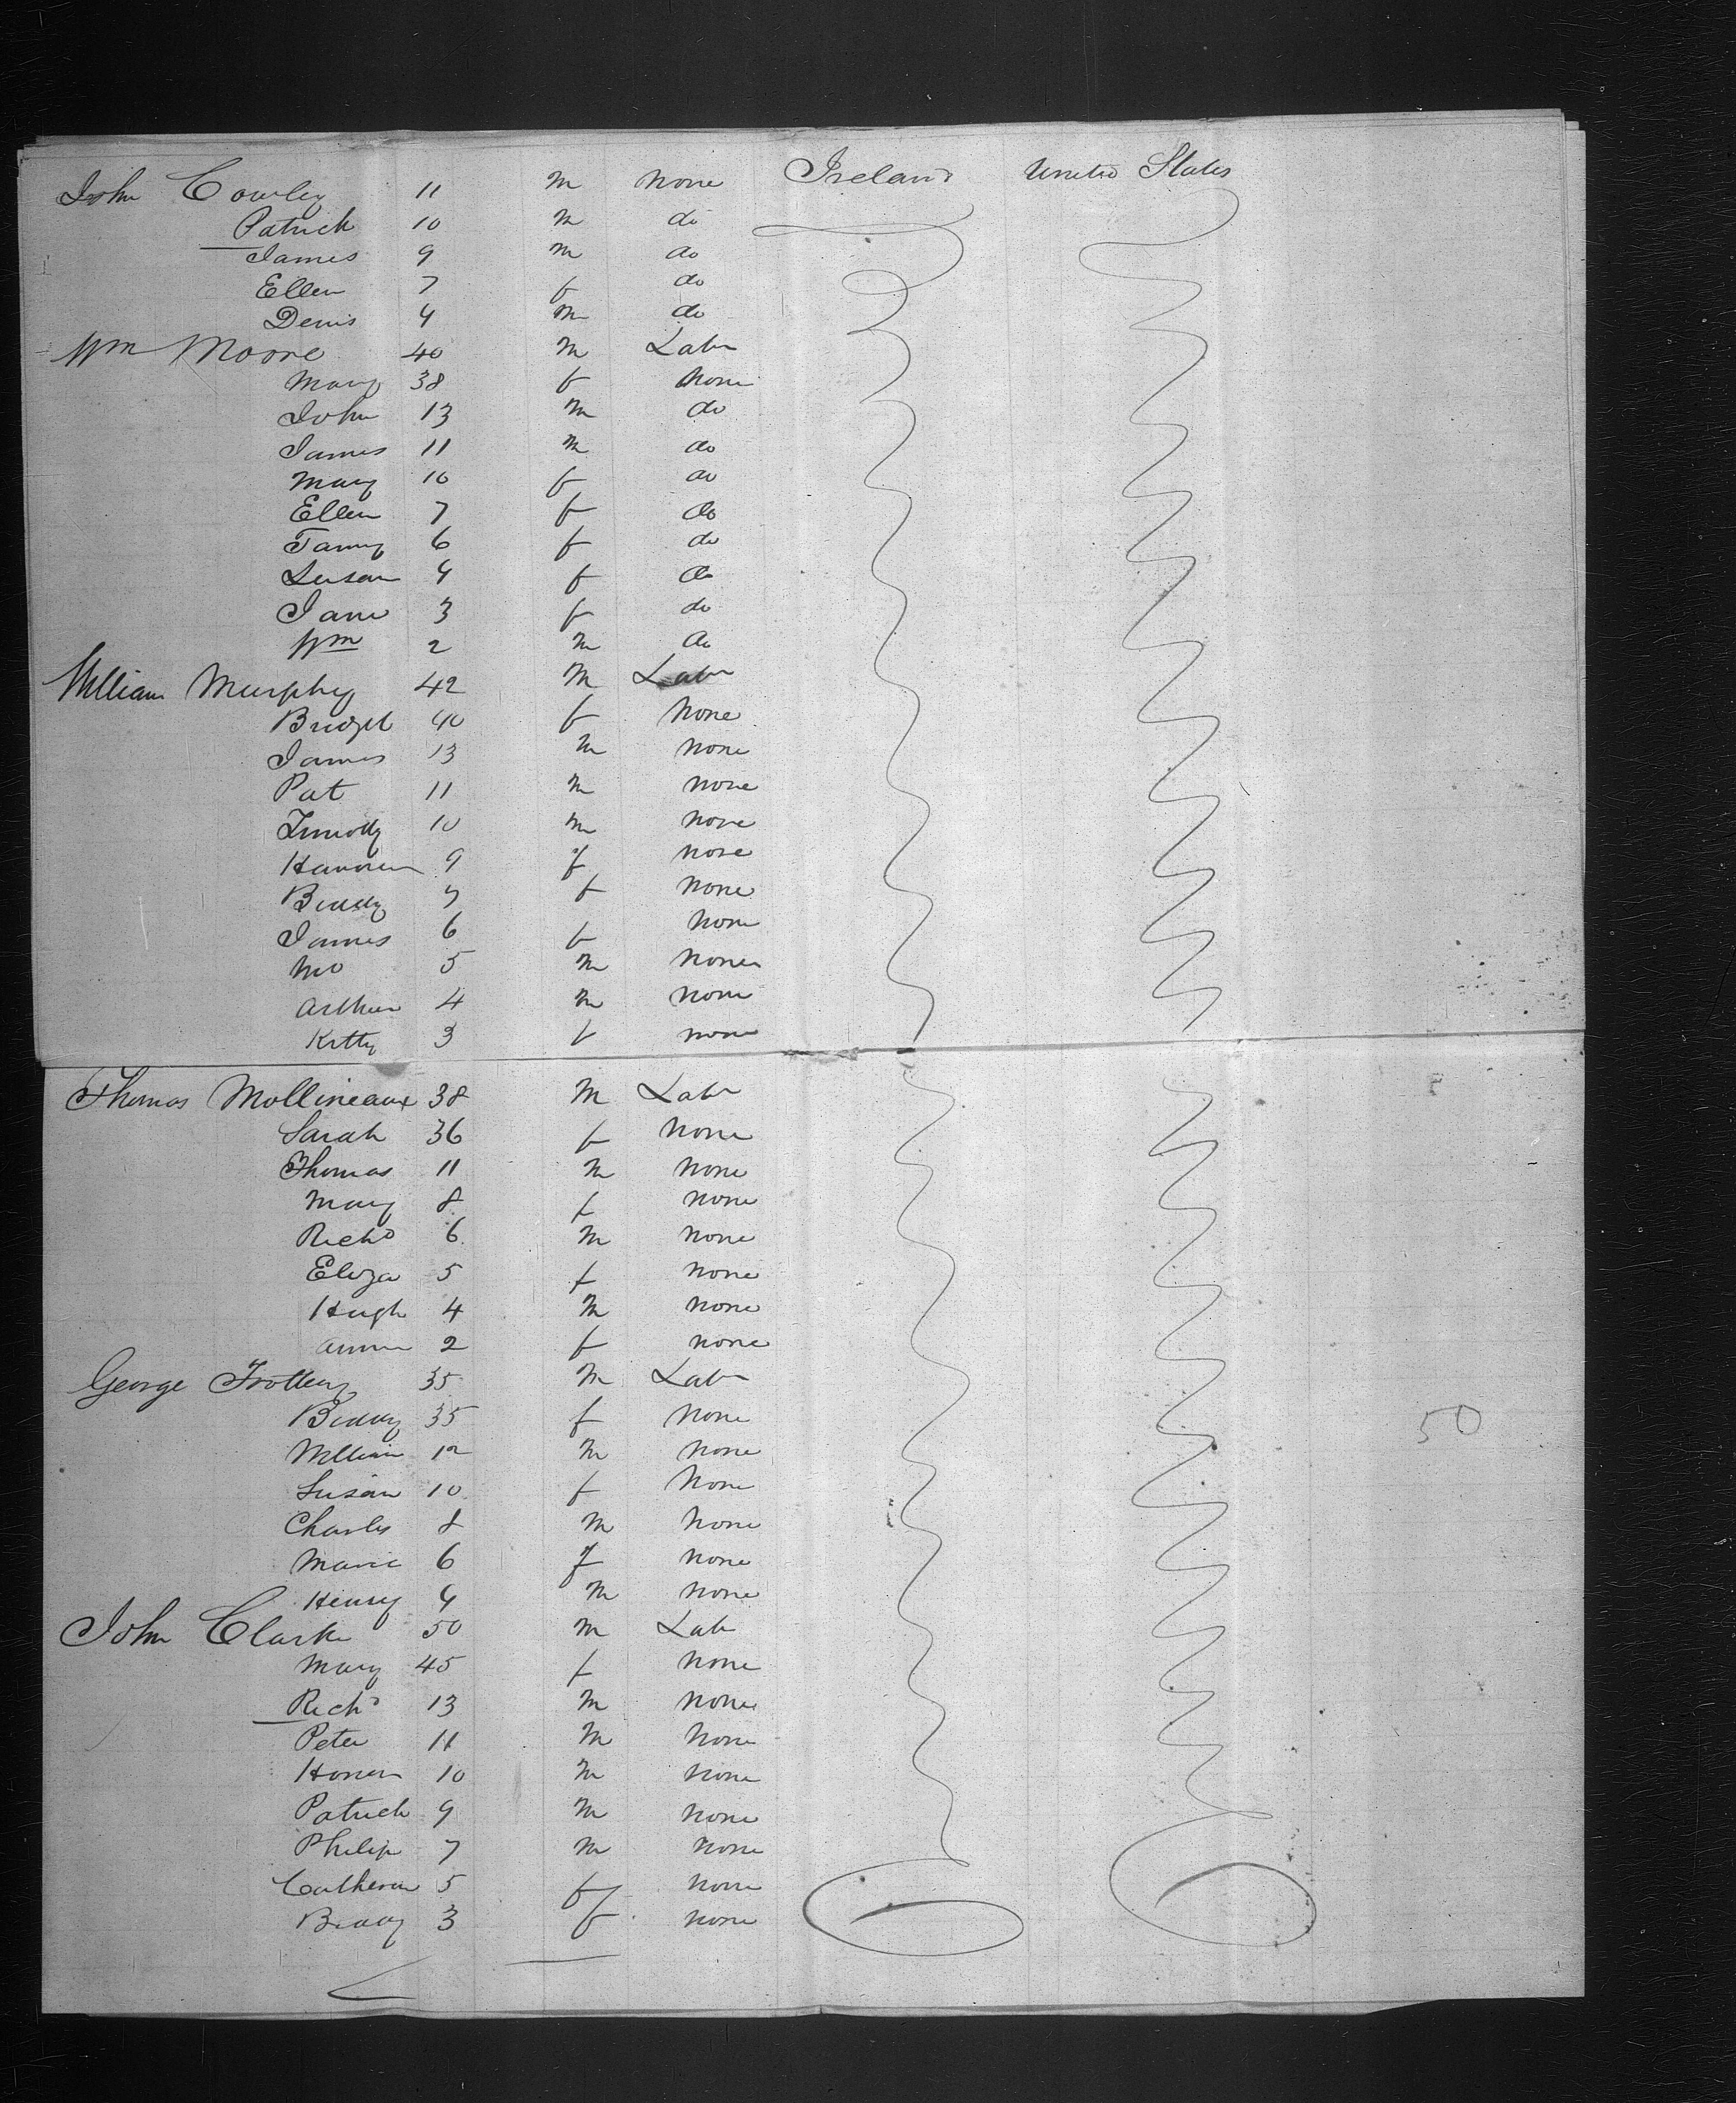 John Cowley 11 m none Ireland United States
Patrick 10 m do
James 9 m do
Ellen 7 f do
Denis 4 m do
Wm Moore 40 m Labr
Mary 38 f none
John 13 m do
James 11 m do
Mary 10 f do
Ellen 7 f do
Fanny 6 f do
Susan 4 f do
Jane 3 f do
Wm 2 m do
William Murphy 42 m Labr
Bridget 40 f none
James 13 m none
Pat 11 m none
Timothy 10 m none
9 f none
Biddy 7 f none
James 6 f none
5 m none
Arthur 4 m none
Kitty 3 f none
Thomas Mollineaux 38 m Labr
Sarah 36 f none
Thomas 11 m none
Mary 8 f none
Richd 6 m none
Eliza 5 f none
Hugh 4 m none
Ann 2 f none
George Trottery 35 m Labr
Biddy 35 f none 50
William 12 m none
Susan 10 f none
Charles 8 m none
Maria 6 f none
Henry 4 m none
John Clark 50 m Lab
Mary 45 f none
Richd 13 m none
Peter 11 m none
Honer 10 m none
Patrick 9 m none
Philip 7 m none
Catherine 5 f none
Biddy 3 f none